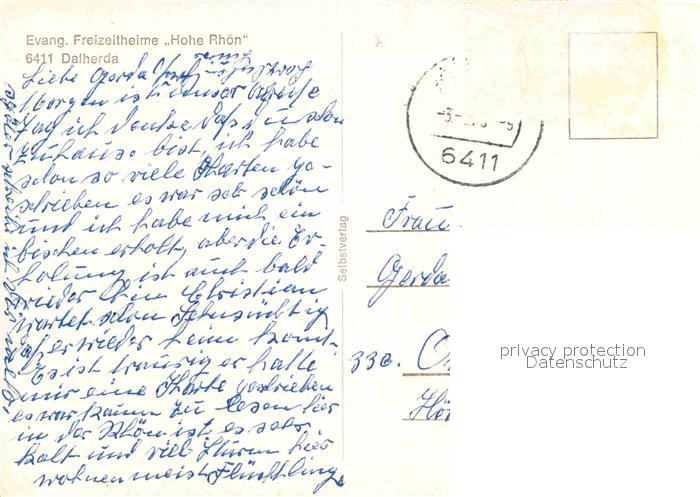 Evang. Freizeitheime „Hohe Rhön"
6411 Dalherda
Liebe Gerda
Morgen ist unser Abreise
Tag ich denke das, u schon
zuhause bist, ich habe
schon so viele Karten ge-
schrieben es war sehr schön
und ich habe mich ein
bischen erholt, aber die Er-
holung ist auch bald
wieder hin Christian
wartet schon Sehnsüchtig
er wieder heim kommt.
Es ist traurig er hatte
mir eine Karte geschrieben
es war kaum zu lesen hier
in der Rhön ist es sehr
kalt und viel Sturm hier
wohnen meist Flüchtlinge
Selbstverlag
6411
Frau
Gerda
privacy protection
Datenschutz